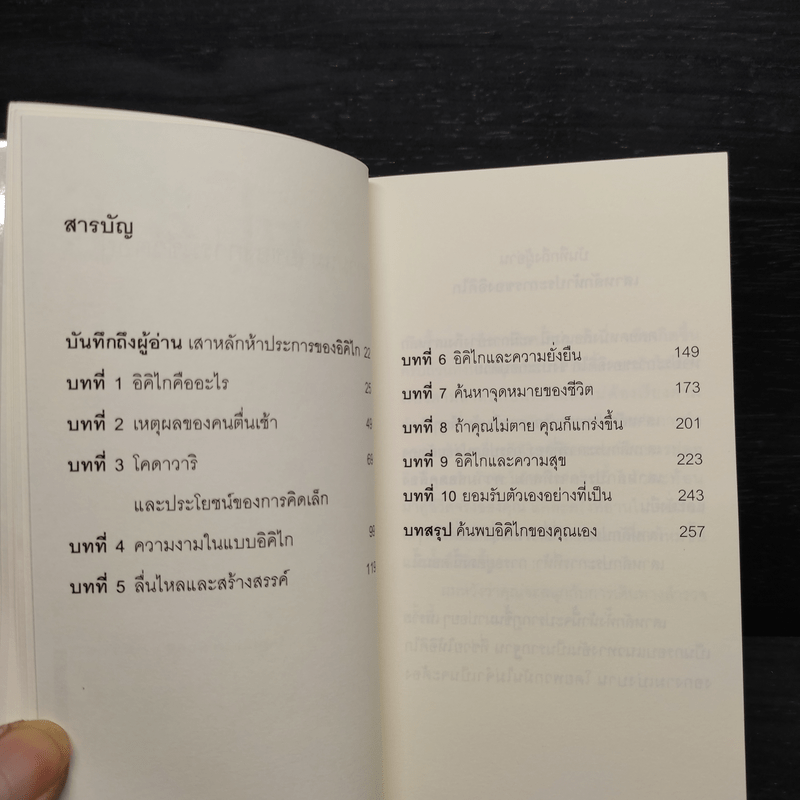 สารบัญ
บันทึกถึงผู้อ่าน เสาหลักห้าประการของอิคิไก 22
บทที่ 1 อิคิไกคืออะไร 25
บทที่ 2 เหตุผลของคนตื่นเช้า 49
บทที่ 3 โคดาวาริ 69
และประโยชน์ของการคิดเล็ก
บทที่ 4 ความงามในแบบอิคิไก 99
บทที่ 5 ลื่นไหลและสร้างสรรค์ 119
บทที่ 6 อิคิไกและความยั่งยืน 149
บทที่ 7 ค้นหาจุดหมายของชีวิต 173
บทที่ 8 ถ้าคุณไม่ตาย คุณก็แกร่งขึ้น 201
บทที่ 9 อิคิไกและความสุข 223
บทที่ 10 ยอมรับตัวเองอย่างที่เป็น 243
บทสรุป ค้นพบอิคิไกของคุณเอง 257